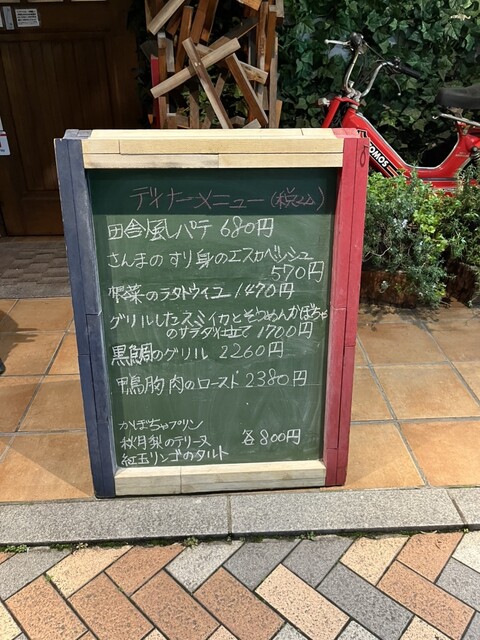 ディナーメニュー(税込)
田舎風パテ 680円
さんまのすり身のエスカベッシュ
570円
野菜のラタトゥイユ 1470円
グリルしたスミイカとそうめんかぼちゃ
のサラダ仕立て 1700円
黒鯛のグリル 2260円
鴨胸肉のロースト 2380円
かぼちゃプリン
秋月梨のテリーヌ 各800円
紅玉リンゴのタルト
TOMOS